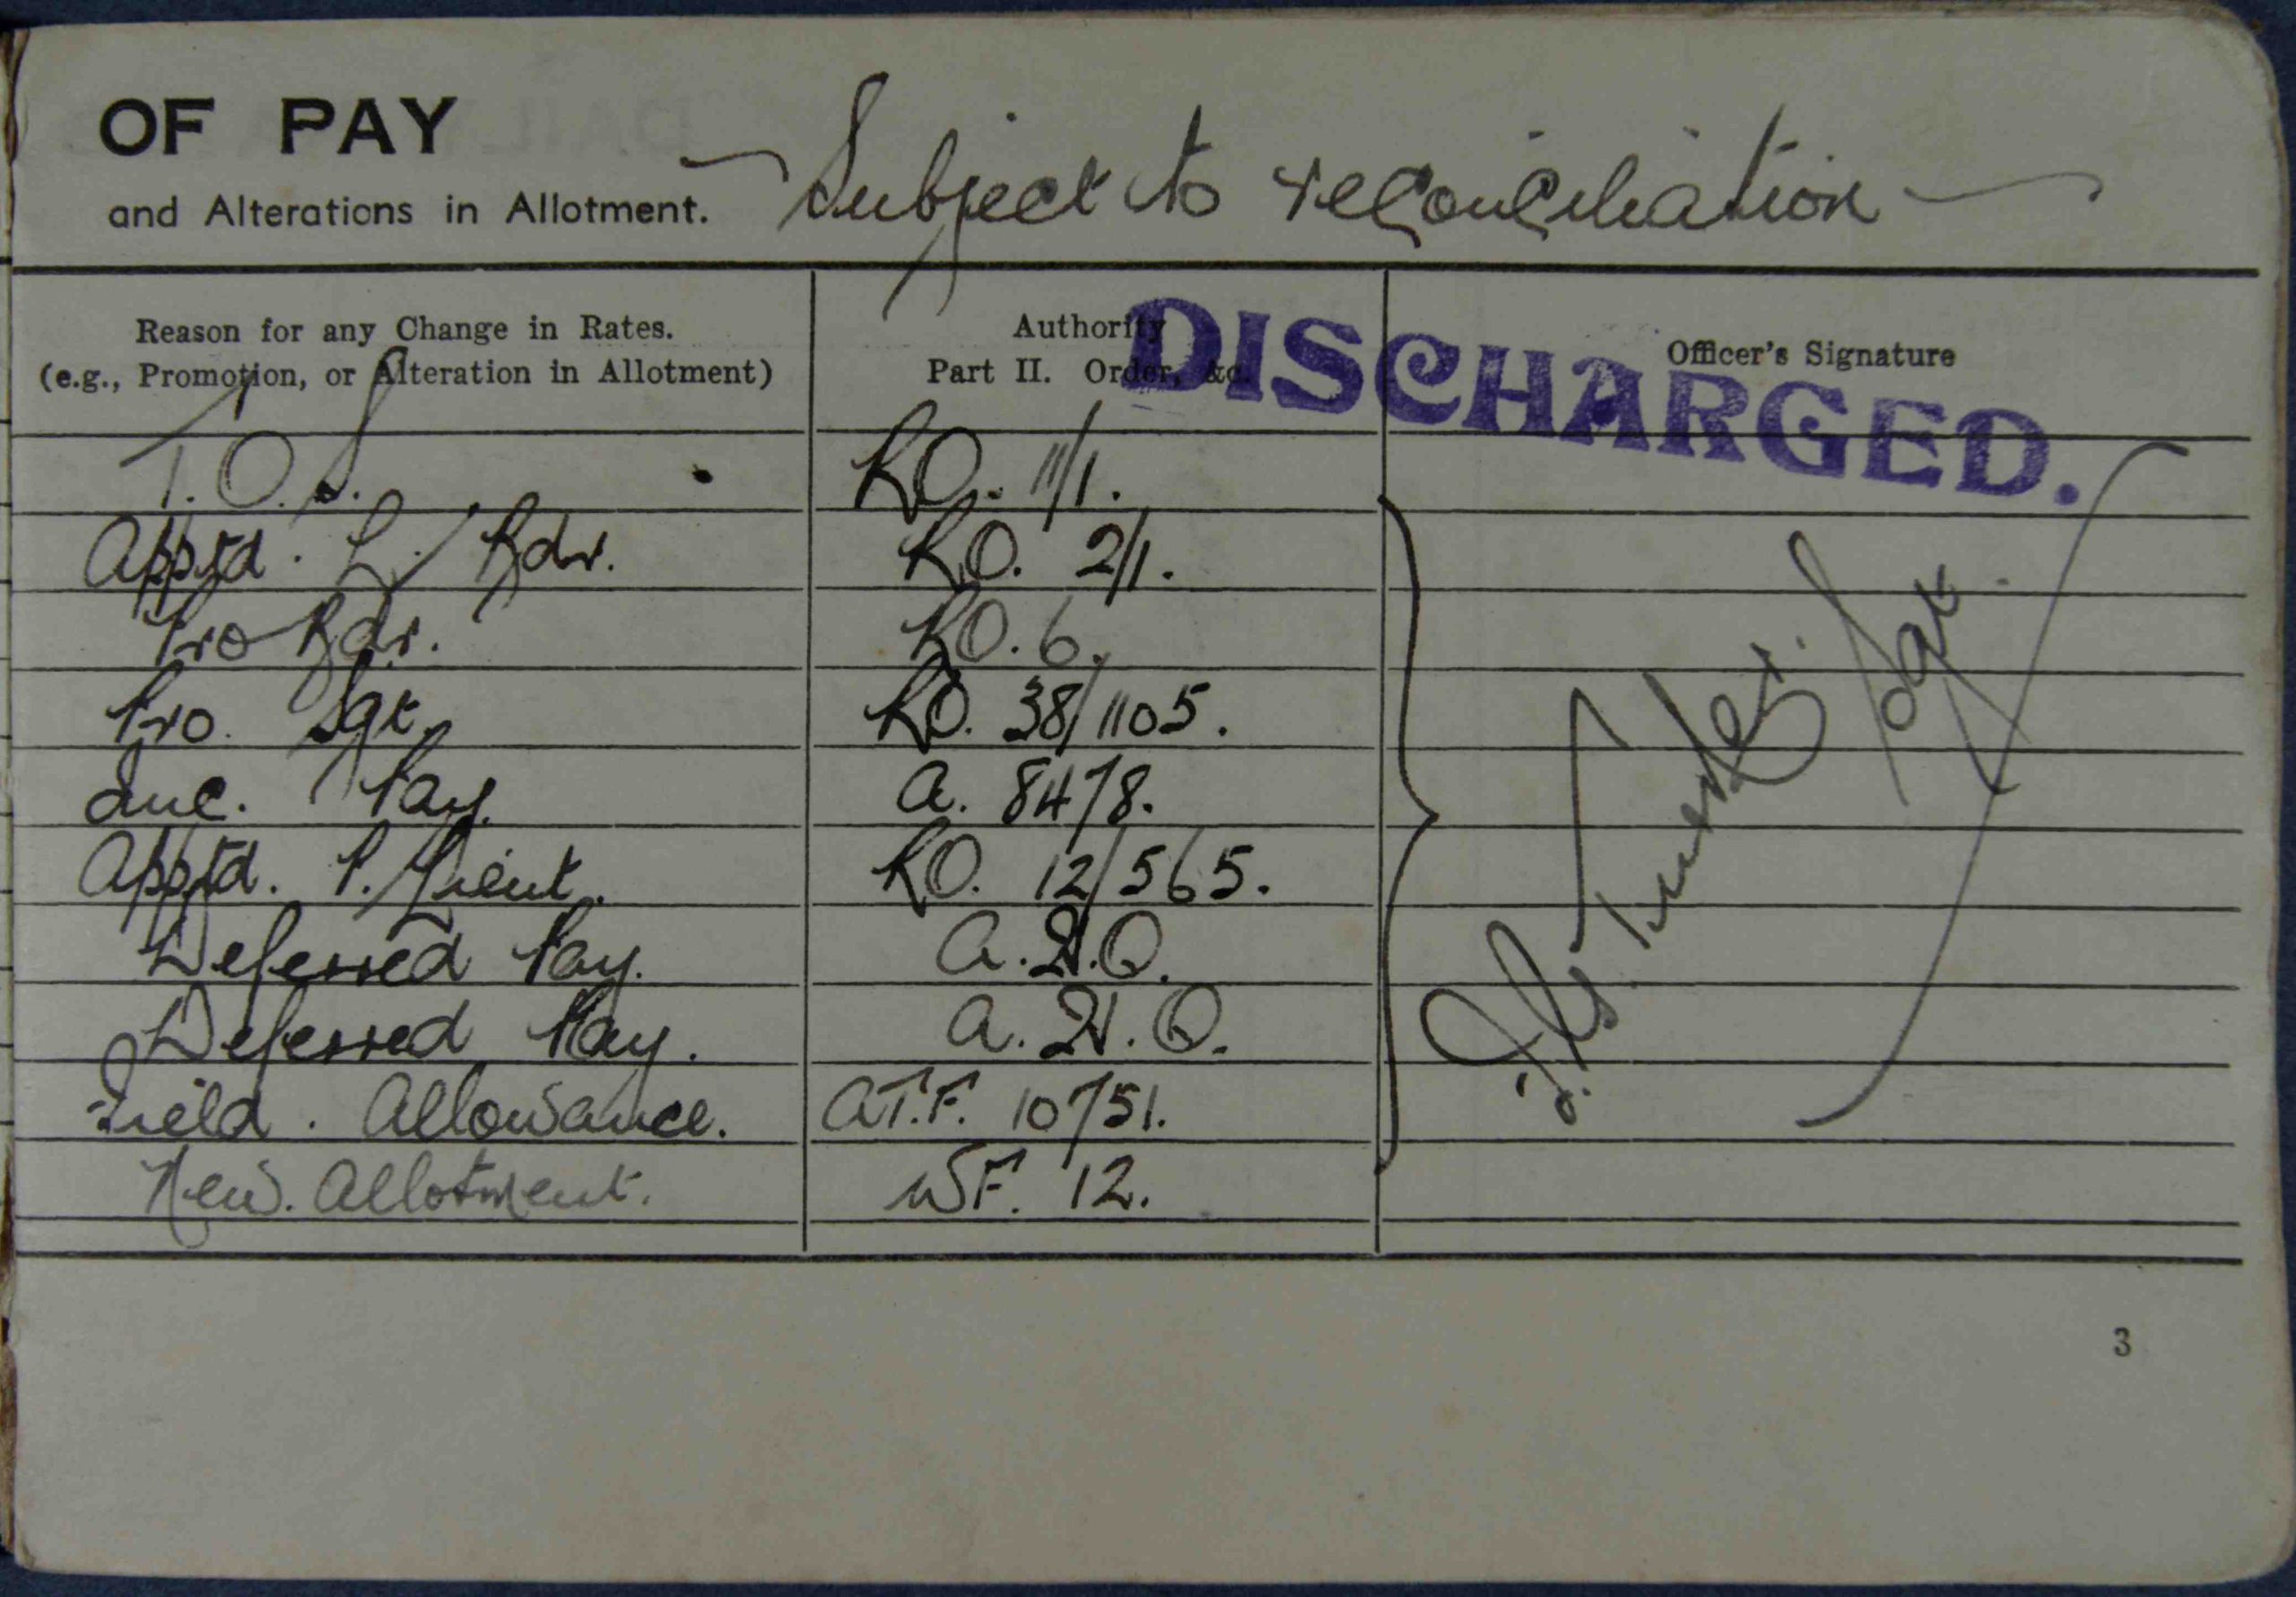 OF PAY
and Alterations in Allotment. Subject to reconciliation
Reason for any Change in Rates.
(e.g., Promotion, or Alteration in Allotment)
Authority
Part II. Order, &c.
Officer's Signature
DISCHARGED.
T.O.S. RO. 11/1.
Apptd. L/Bdr. RO. 2/1.
Pro Bdr. RO. 6.
Pro. Sgt. RO. 38/1105.
Inc. Pay. A. 8478.
Apptd. P. Lieut. RO. 12/565.
Deferred Pay. A.H.Q.
Deferred Pay. A.H.Q.
Field. Allowance. AT.F. 10751.
New. Allotment. WF. 12.
3